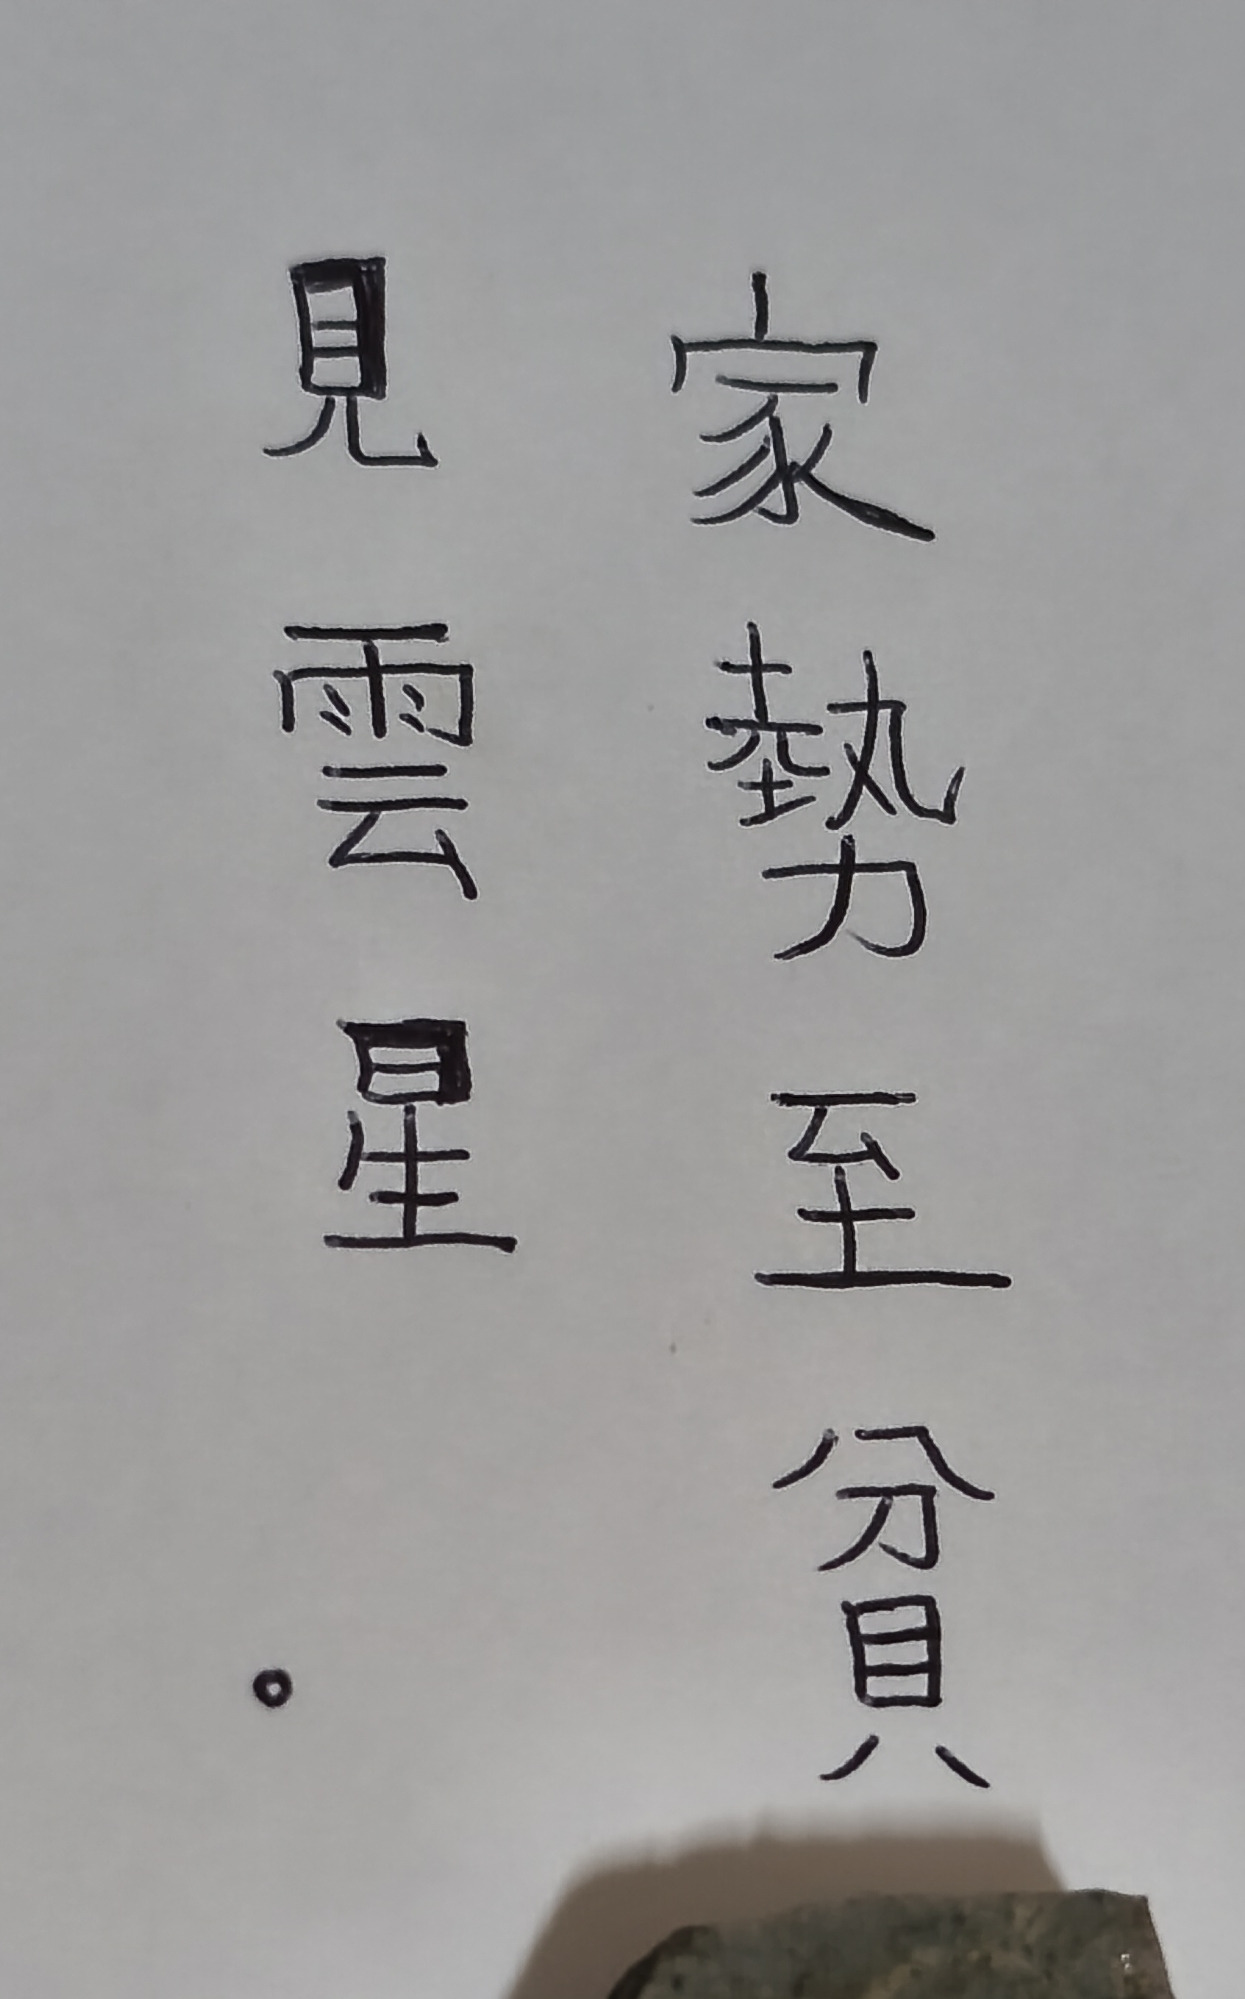 家勢至貧
見雲星。